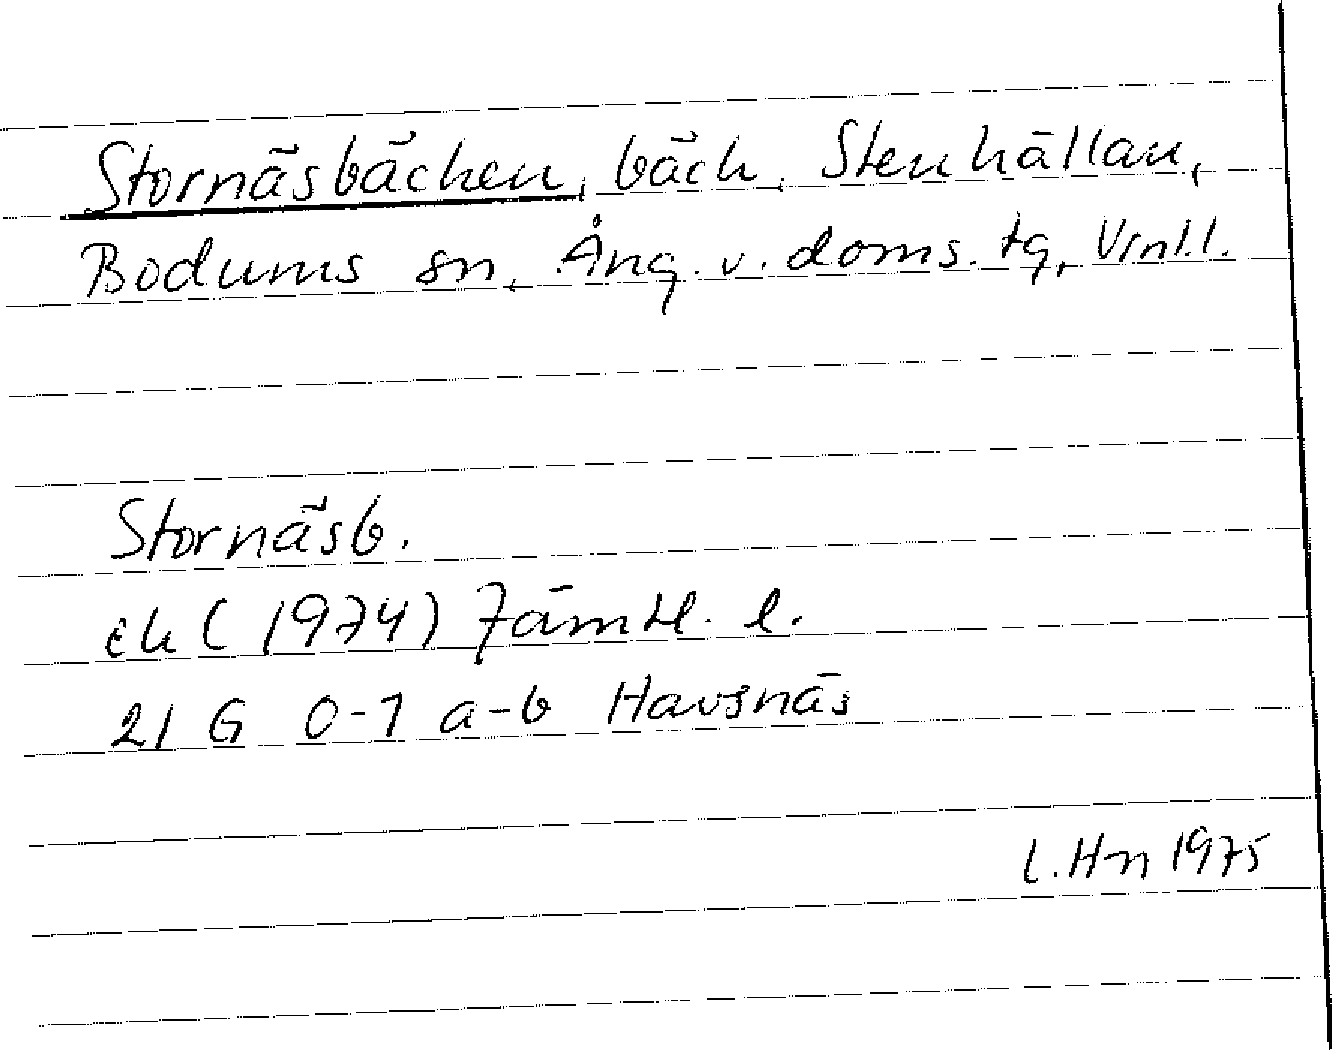 Stornäsbäcken, bäck, Stenhällan,
Bodums sn, Ång. v. doms. tg, Vrnl.l.
Stornäsb.
ek (1974) Jämtl. l.
21 G 0-1 a-b Havsnäs
l. Hn 1975